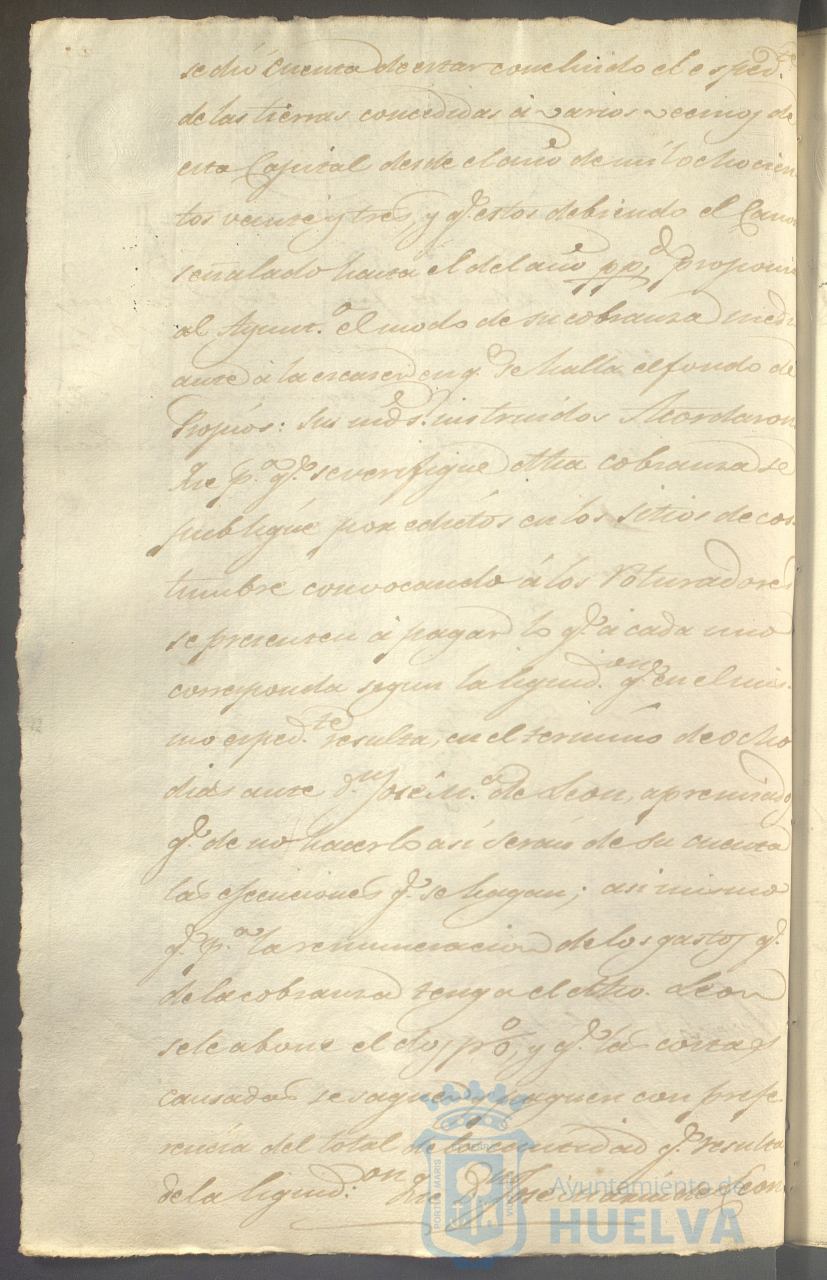 se dió cuenta de estar concluido el exped.te
de las tierras concedidas á varios vecinos de
esta Capital desde el año de mil ochocien
tos veinte y tres, y q.e estos debiendo el Canon
señalado hasta el del año pp.do propone
al Ayunt.o el modo de su cobranza medi
ante á la escasez en q.e se halla el fondo de
Propios: Sus mds. instruidos Acordaron
Que p.a q.e se verifique dha cobranza se
publique por edictos en los sitios de cos
tumbre convocando á los Roturadores
se presenten á pagar lo q.e á cada uno
corresponda segun la liquid.on q.e en el mis
mo exped.te resulta, en el termino de ocho
dias ante D.n José M.a de Leon, apremiado
q.e de no hacerlo así serán de su cuenta
las ejecuciones q.e se hagan; asi mismo
q.e p.a la remuneracion de los gastos q.e
de la cobranza tenga el dho. Leon
se le abone el dos p%, y q.e las costas
causadas se saquen y paguen con prefe
rencia del total de la cantidad q.e resulta
de la liquid.on Que D.n José Maria de Leon
PORTUS MARIS
Ayuntamiento de
HUELVA